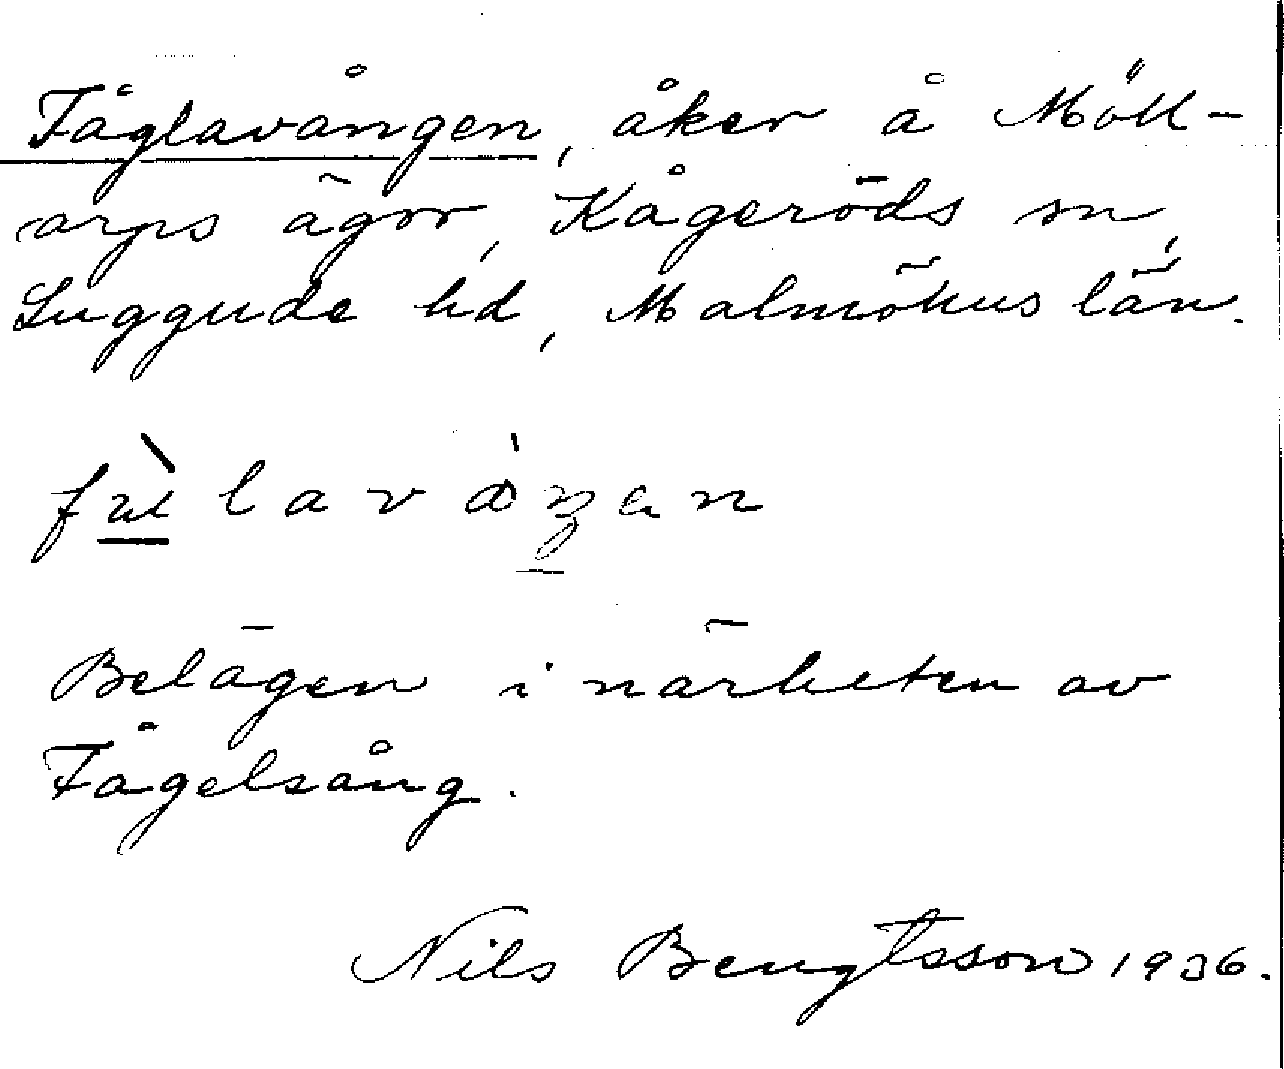 Fåglavången, åker å Möll-
arps ägor, Kågeröds sn,
Luggude hd, Malmöhus län.
Belägen i närheten av
Fågelsång.
Nils Bengtsson 1936.